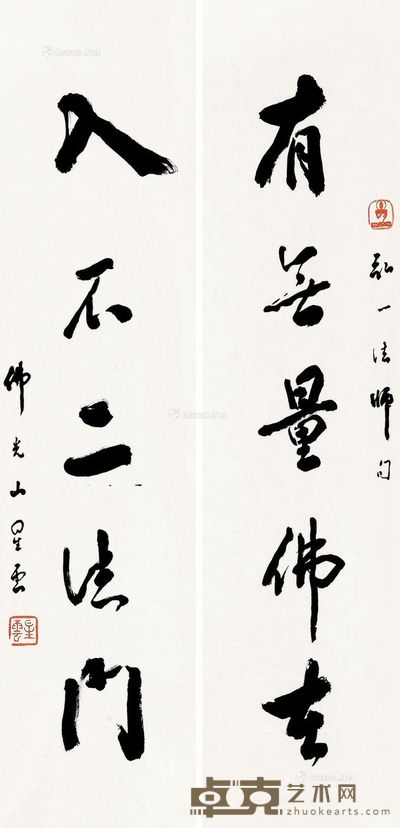 弘一法師句
有無量佛在
入不二法門
佛光山星雲
星雲
Artron.Net
卓克艺术网
zhuokearts.com